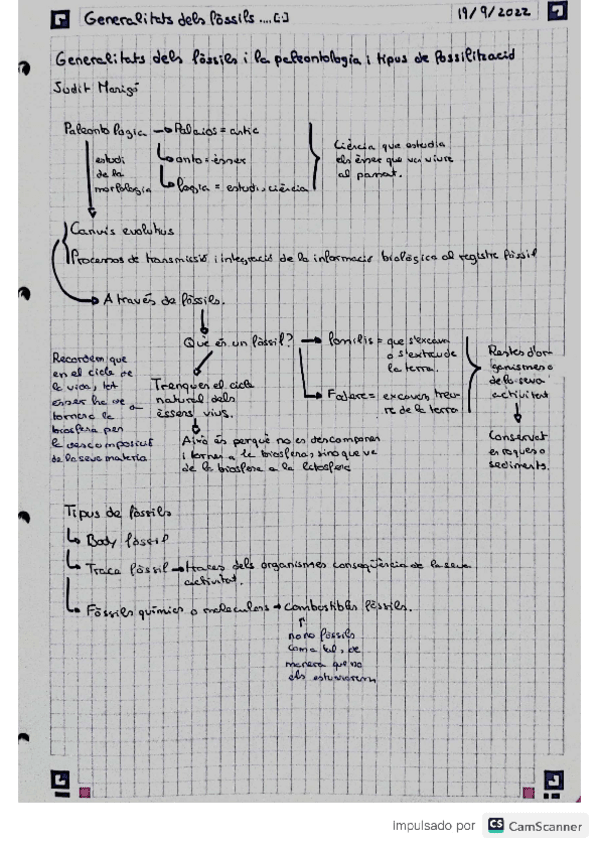 Generalitats dels fòssils ....[.]
19/9/2022
Generalitats dels fòssils i la paleontologia i tipus de fossilització
Judit Marigó
Paleontologia → Palaios = antic
onto = ésser
logia = estudi, ciència
Ciència que estudia
els ésser que van viure
al passat.
estudi
de la
morfologia
Canvis evolutius
Processos de transmissió i integració de la informació biològica al registre fòssil
A través de fòssils.
Què és un fòssil? → fossilis = que s'excava
o s'extreu de
la terra.
Fodere = excavar, treu-
re de la terra
Restes d'or-
ganismes o
de la seva
activitat
Conservat
en roques o
sediments.
Recordem que
en el cicle de
la vida, tot
ésser ha de
tornar a la
biosfera per
la descomposició
de la seva matèria
Trenquen el cicle
natural dels
éssers vius.
Això és perquè no es descomponen
i tornen a la biosfera, sino que va
de la biosfera a la litosfera
Tipus de fòssils
Body fòssil
Traça fòssil → traces dels organismes conseqüència de la seva
activitat.
Fòssils químics o moleculars → Combustibles fòssils.
no no fòssils
com a tal, de
manera que no
els estudiarem
Impulsado por CS CamScanner